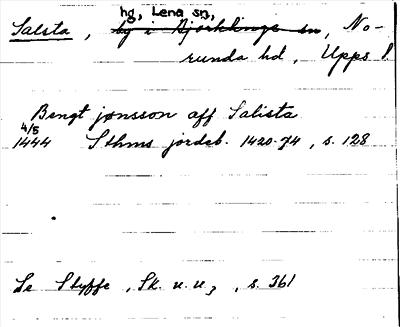 hg, Lena sn,
Salsta, by i Björklinge sn, No-
runda hd, Upps l.
Bengt jønsson aff Salista
4/5
1444 Sthms jordeb. 1420-74, s. 128
Se Styffe, Sk. u. u₃, s. 361